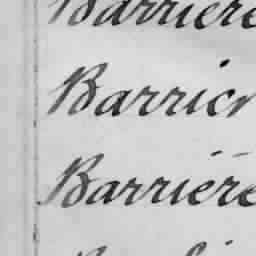 Barriere
Barrier
Barrière